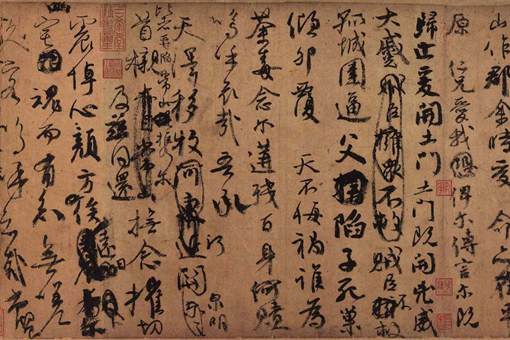 山作郡余時受命亦在平
原仁兄愛我俾爾傳言爾既
歸止爰開土門土門既開凶威
大蹙賊臣不救
孤城圍逼父陷子死巢
傾卵覆天不悔禍誰為
荼毒念爾遘殘百身何贖
嗚乎哀哉吾承
天澤移牧河關泉明
比者再陷常山攜爾
首櫬及茲同還撫念摧切
震悼心顏方俟遠日
宅魂而有知無嗟
久客嗚呼哀哉尚饗